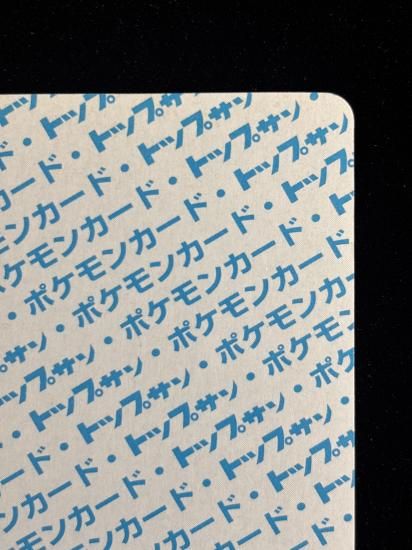 ド・トップサン
ード・トップサン
カード・トップサン・
ンカード・トップサン・
モンカード・トップサン
ケモンカード・トップ
・ポケモンカード・ト
・ポケモンカード・
サン・ポケモンカード
プサン・ポケモンカー
トップサン・ポケモン
・トップサン・ポケ
ド・トップサン・ポ
ード・トップサン・
カード・トップサン
ンカード・トップ
モンカード・ト